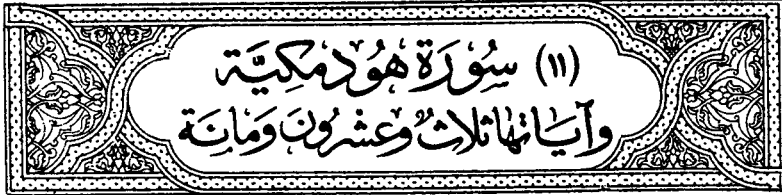 (١١) سُورَة هُودمَكِيَّة
وآيَاتهَا ثلَاثٌ وعشْرُونَ وَمائَة